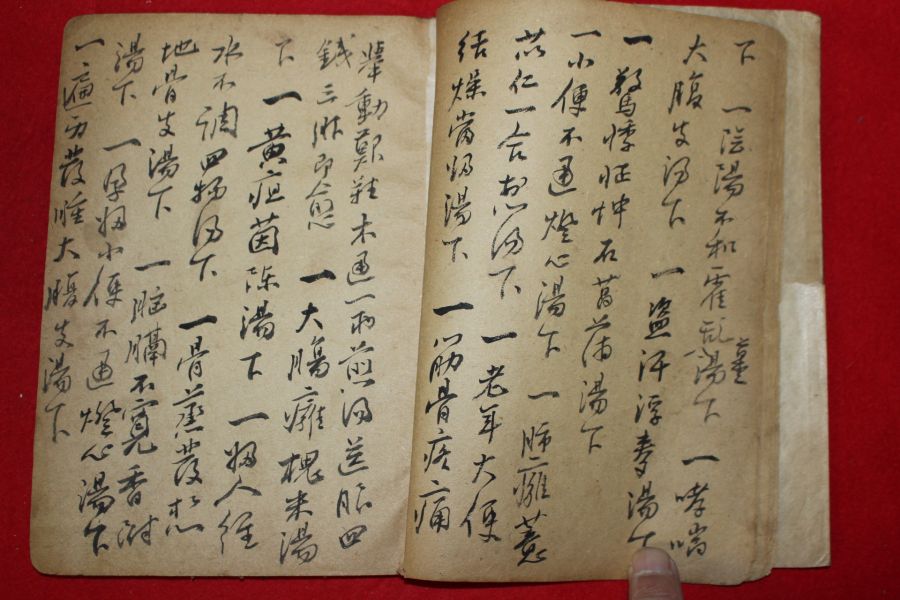 下 一 陰陽不和霍亂薑湯下 一 哮喘
大腹皮湯下 一 盜汗浮麥湯下
一 驚悸怔忡石菖蒲湯下
一 小便不通燈心湯下 一 肺癰薏
苡仁一合煎湯下 一 老年大便
結燥當歸湯下 一 筋骨疼痛
舉動艱難木通一兩煎湯送服四
錢三服即愈 一 大腸癰槐米湯
下 一 黃疸茵陳湯下 一 婦人經
水不調四物湯下 一 骨蒸發熱
地骨皮湯下 一 胸膈不寬香附
湯下 一 孕婦小便不通燈心湯下
一 遍身發腫大腹皮湯下